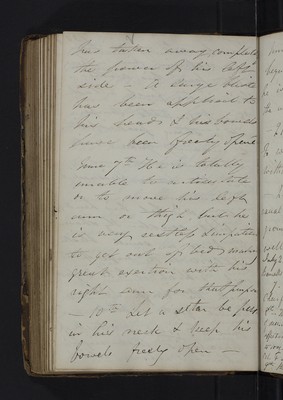 has taken away completely
the power of his left
side - A large blister
has been applied to
his head & his bowels
have been freely opened
June 7th He is totally
unable to articulate
or to move his left
arm or thigh but he
is very restless & impatient
to get out of bed making
great exertion with his
right arm for that purpose
- 10th Let a seton be placed
in his neck & keep his
bowels freely open -